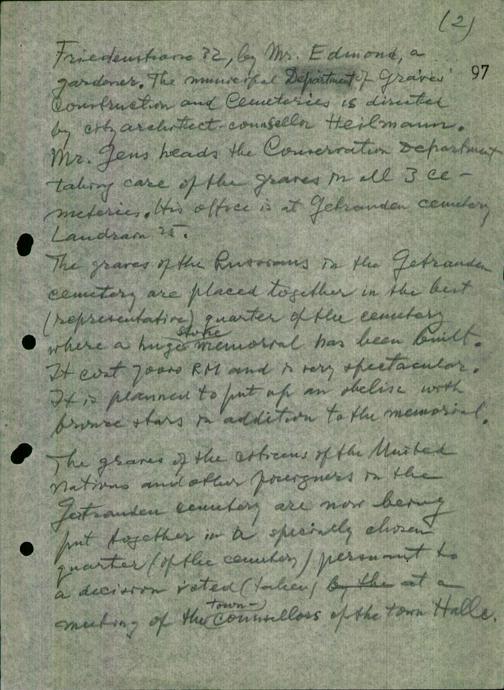 (2)
97
Friedenstrasse 32, by Mr. Edmond, a
gardener. The municipal Department of Graves'
Construction and Cemeteries is directed
by city architect-counsellor Heilmann.
Mr. Jens heads the Conservation Department
taking care of the graves in all 3 ce-
meteries. His office is at Getranden cemetery
Landrain 25.
The graves of the Russians in the Getranden
cemetery are placed together in the best
(representative) quarter of the cemetery
where a huge stone memorial has been built.
It cost 70000 RM and is very spectacular.
It is planned to put up an obelisc with
bronze stars in addition to the memorial.
The graves of the citicens of the United
Nations and other foreigners in the
Getranden cemetery are now being
put together in a specially chosen
quarter (of the cemetery) persuant to
a decision voted (taken) by the at a
meeting of the (town-) counsellors of the town Halle.